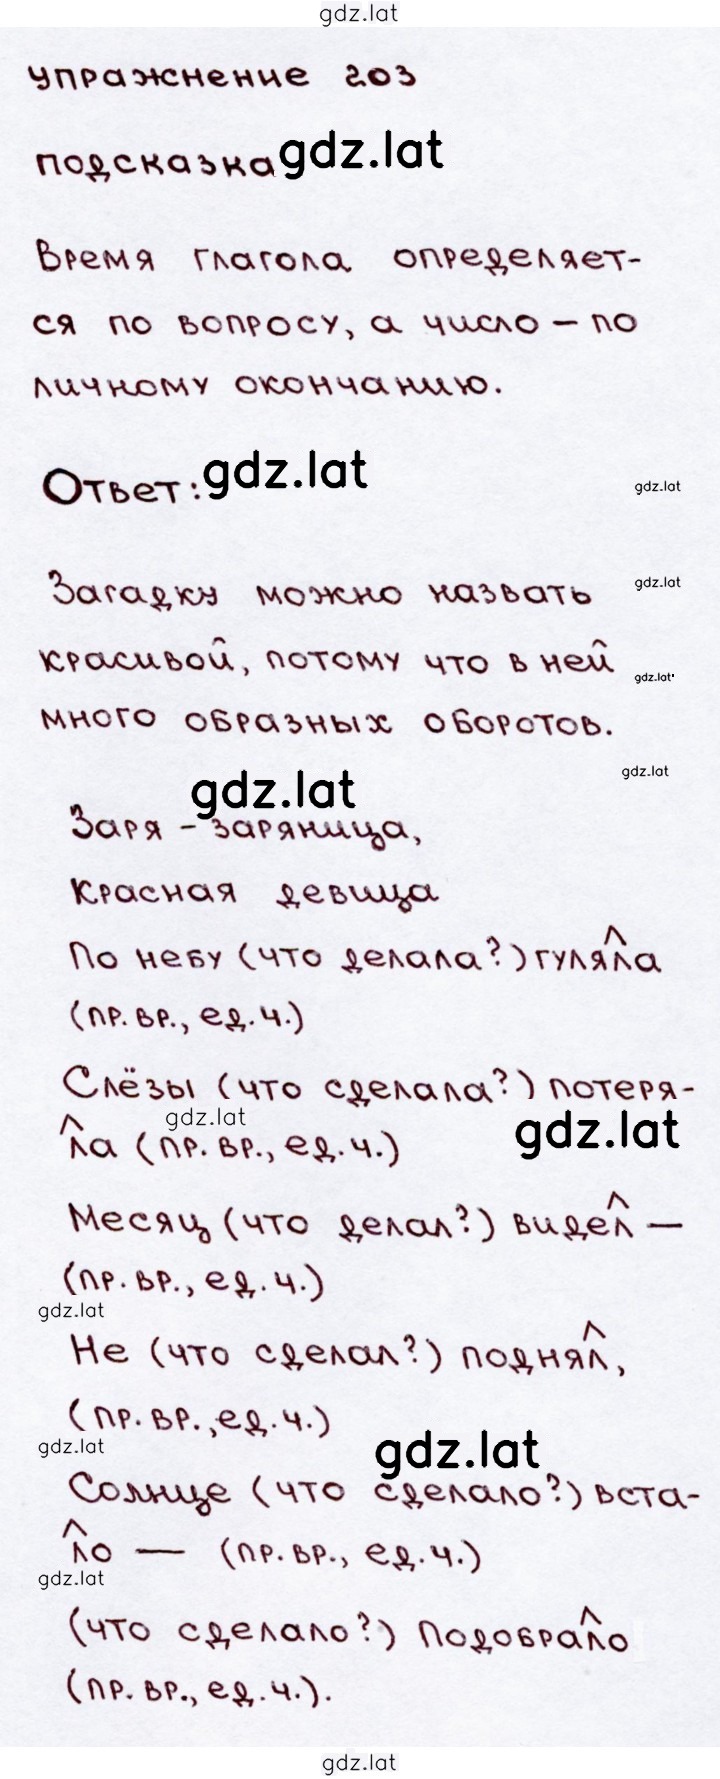 gdz.lat
упражнение 203
подсказка gdz.lat
Время глагола определяет-
ся по вопросу, а число – по
личному окончанию.
Ответ: gdz.lat
gdz.lat
Загадку можно назвать
gdz.lat
красивой, потому что в ней
gdz.lat
много образных оборотов.
gdz.lat
gdz.lat
Заря - заряница,
Красная девица
По небу (что делала?) гуляла
(пр. вр., ед. ч.)
Слёзы (что сделала?) потеря-
gdz.lat
ла (пр. вр., ед. ч.)
gdz.lat
Месяц (что делал?) видел —
(пр. вр., ед. ч.)
gdz.lat
Не (что сделал?) поднял,
(пр. вр., ед. ч.)
gdz.lat
gdz.lat
Солнце (что сделало?) вста-
ло — (пр. вр., ед. ч.)
gdz.lat
(что сделало?) подобрало
(пр. вр., ед. ч.).
gdz.lat